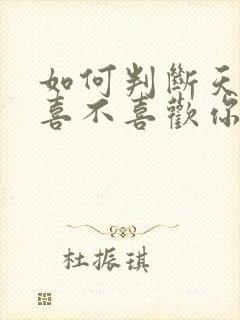 如何判斷天
喜不喜歡你
杜振琪